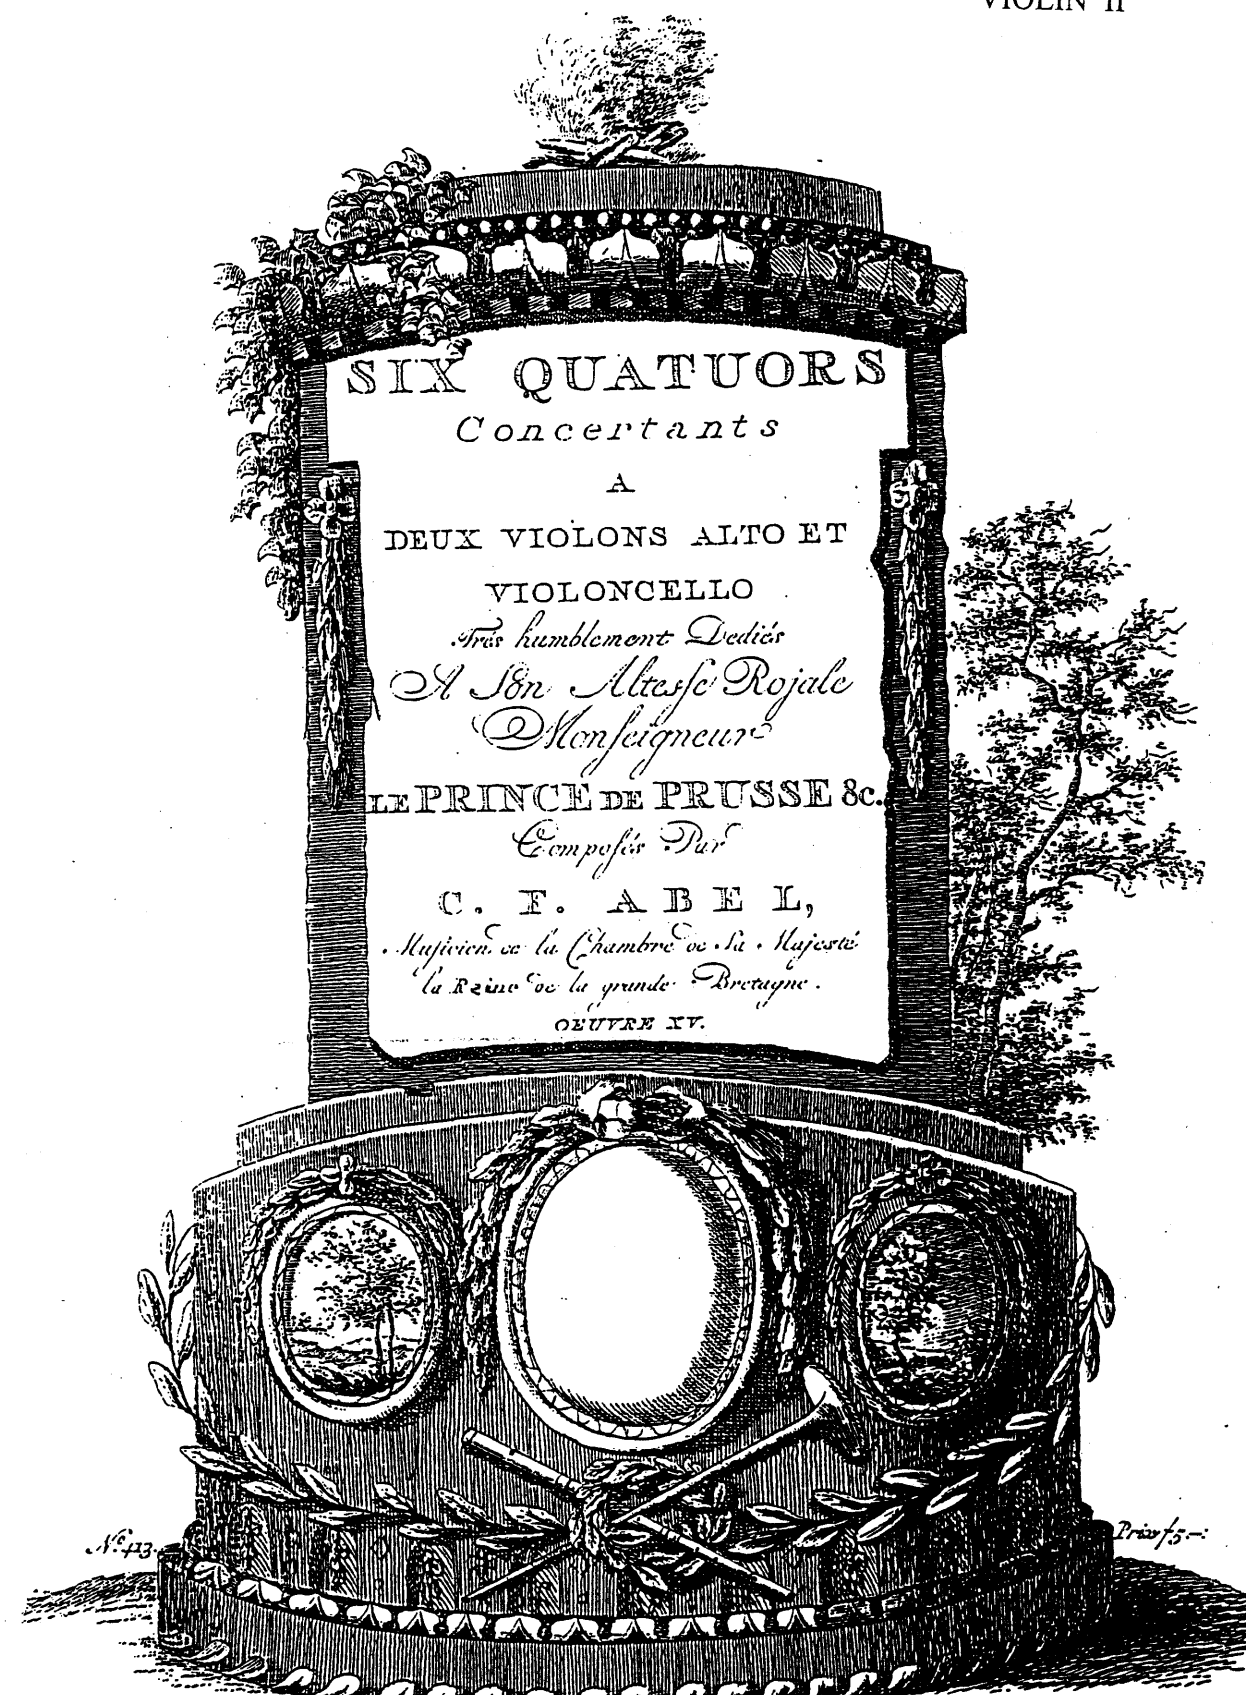 VIOLIN II
SIX QUATUORS
Concertants
A
DEUX VIOLONS ALTO ET
VIOLONCELLO
Trés humblement Dediés
A Son Altesse Rojale
Monseigneur
LE PRINCE DE PRUSSE &c.
Composés Par
C. F. ABEL,
Musicien de la Chambre de Sa Majesté
la Reine de la grande Bretagne.
OEUVRE XV.
No. 413.
Prix f 5.-: